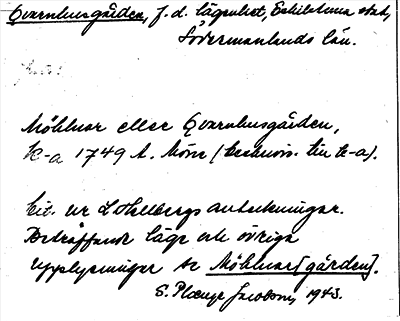 Qvarnhusgården, f.d. lägenhet, Eskilstuna stad,
Södermanlands län.
Möhlnar eller Qvarnhusgården,
K-a 1749 A. Möne (
Cit. ur L Hellbergs anteckningar.
Beträffande läge och övriga
upplysningar se Möhlnar[gården].
S. Jacobson, 1943.